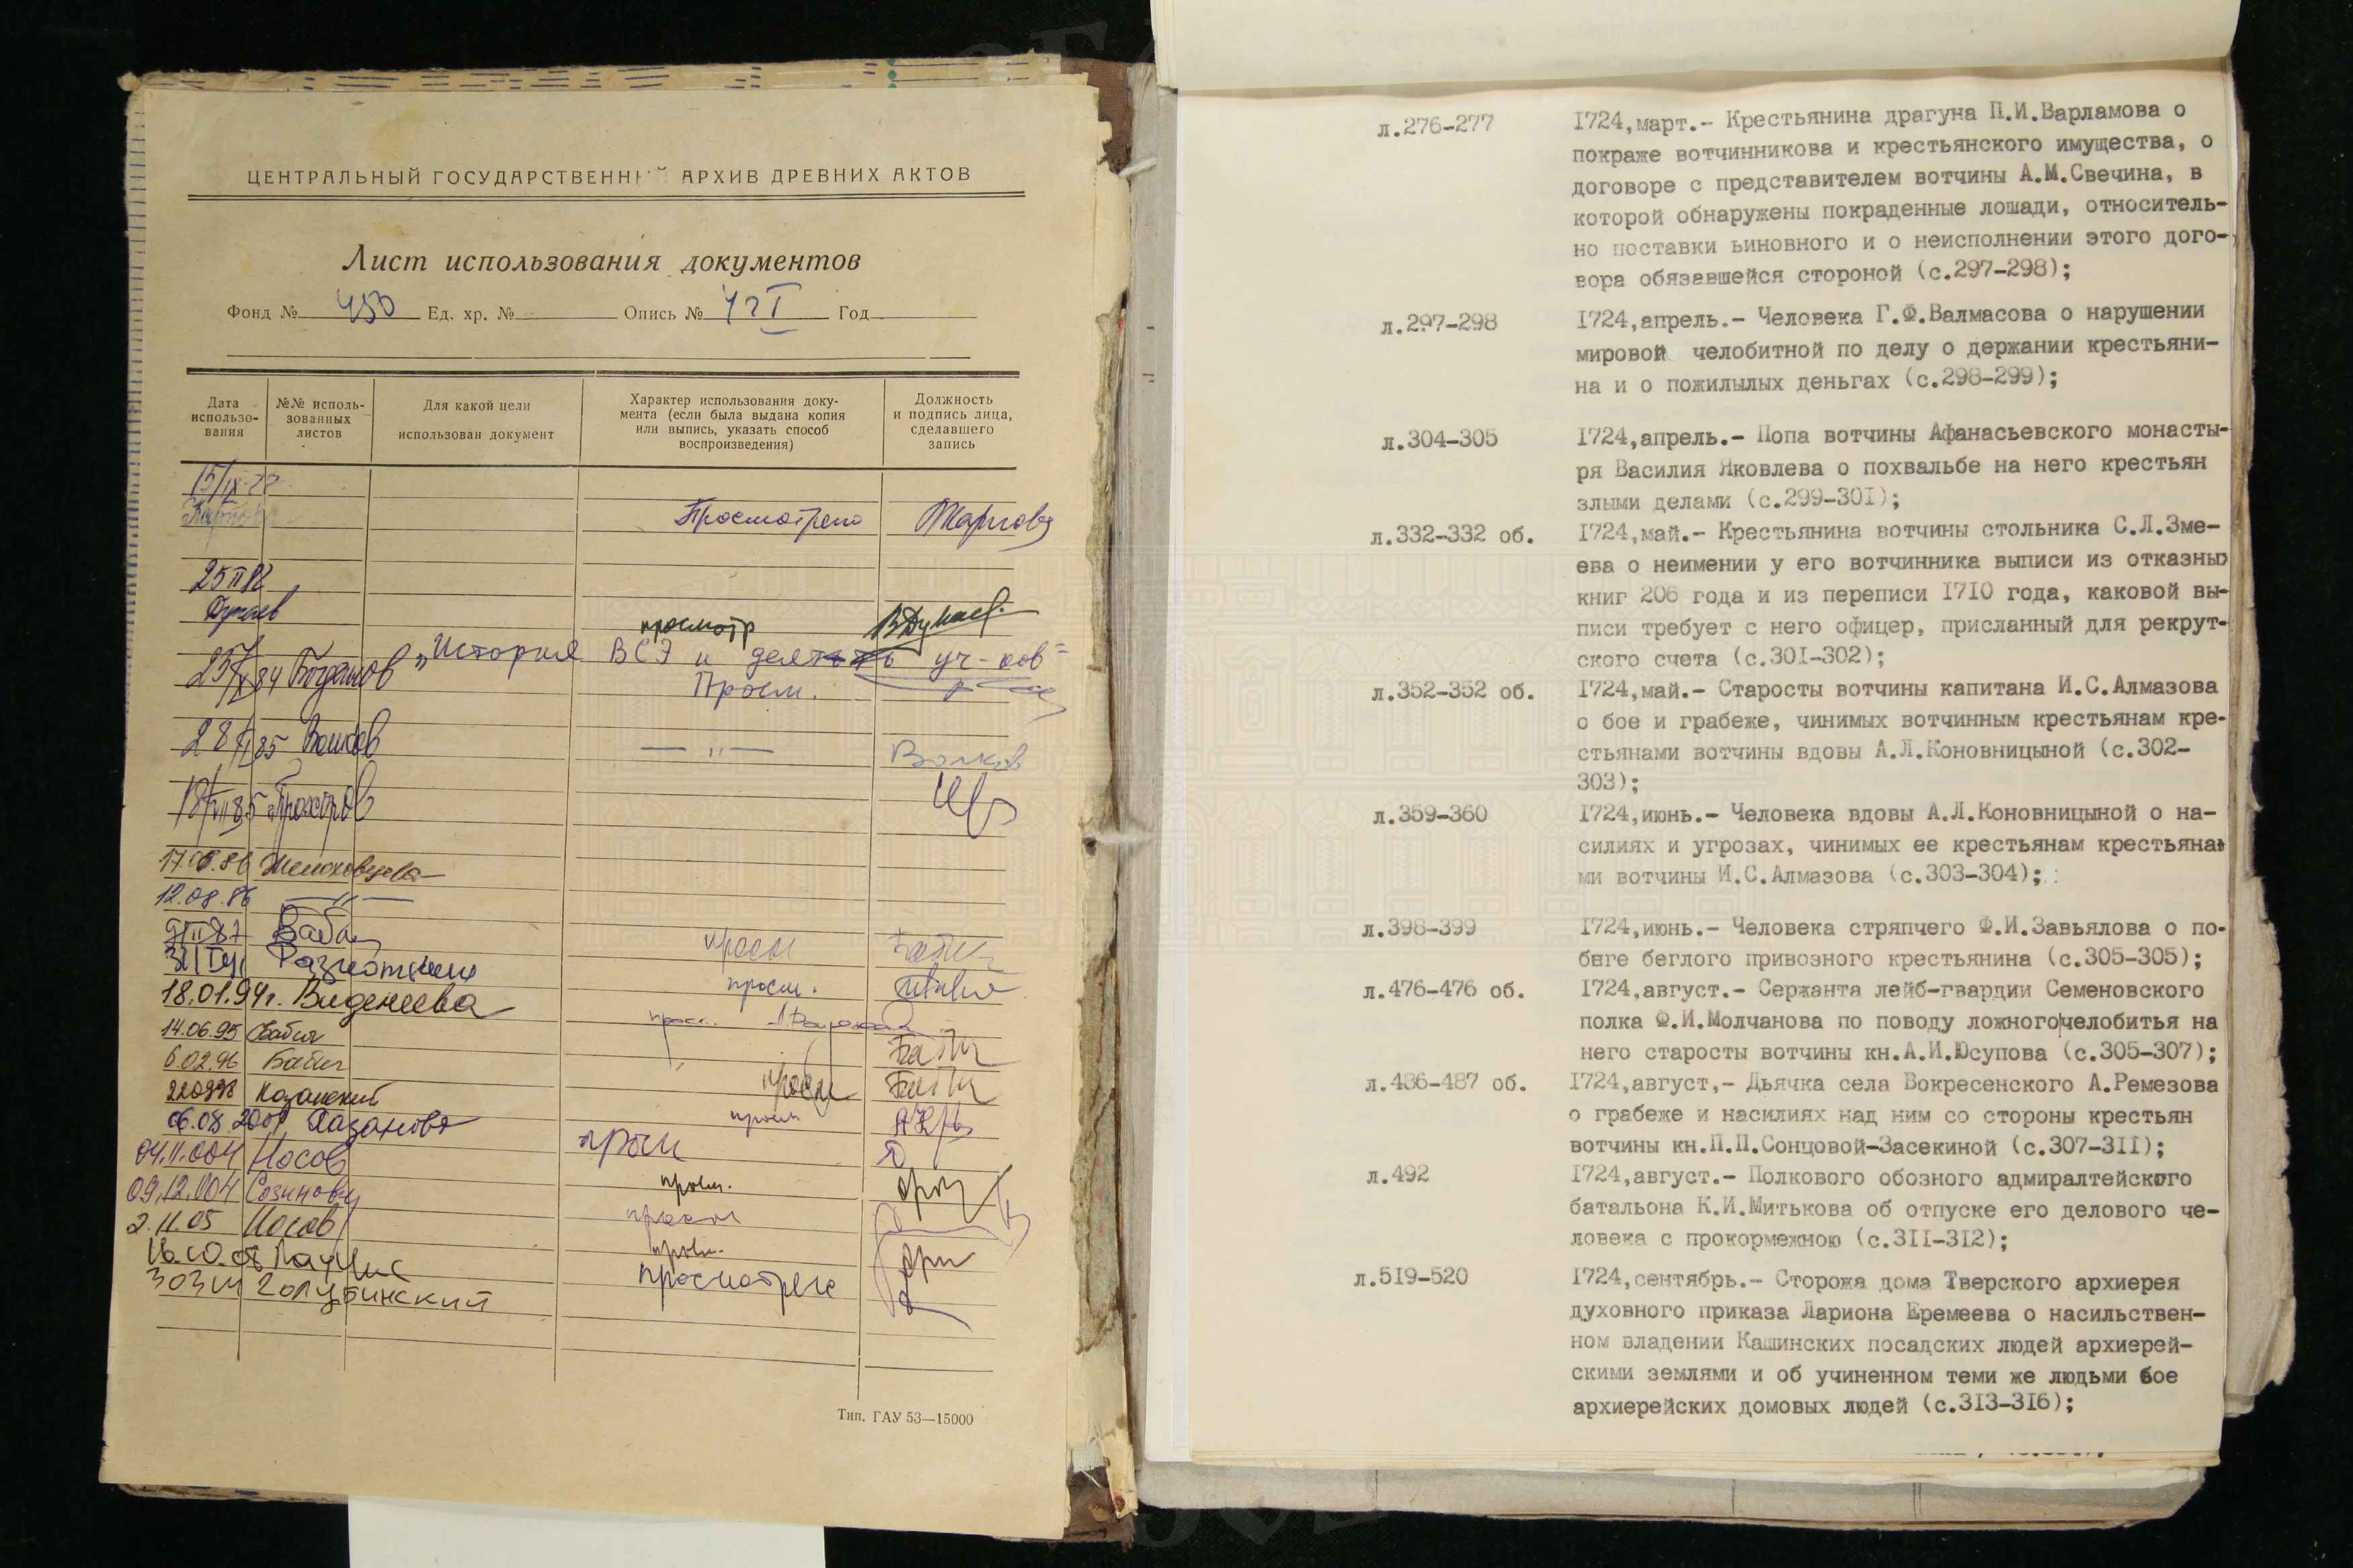 ЦЕНТРАЛЬНЫЙ ГОСУДАРСТВЕНН Й АРХИВ ДРЕВНИХ АКТОВ
Лист использования документов
Фонд № 450 Ед. хр. № Опись № Год
Дата использо-вания
№№ исполь-зованных листов
Для какой цели использован документ
Характер использования доку-мента (если была выдана копия или выпись, указать способ воспроизведения)
Должность и подпись лица, сделавшего запись
15/IX-77
Просмотрено
25 II 82
Дунаев
просмотр
Богданов „История ВСЭ и уч-ков"
Просм.
Волков — „ — Волков
Прохоров
17.06.86
12.08.86 — „ —
просм
просм.
18.01.94г. Виденеева
14.06.95 Бабич
6.02.96 Бабич
просм
Казанский
просм
06.08.2001 Казанова
просм
04.11.004 Носов
просм.
09.12.004
просм
2.11.05 Носов
просм.
просмотрено
Голубинский
Тип. ГАУ 53—15000
л.276-277 1724,март.- Крестьянина драгуна П.И.Варламова о
покраже вотчинникова и крестьянского имущества, о
договоре с представителем вотчины А.М.Свечина, в
которой обнаружены покраденные лошади, относитель-
но поставки виновного и о неисполнении этого дого-
вора обязавшейся стороной (с.297-298);
л.297-298 1724,апрель.- Человека Г.Ф.Валмасова о нарушении
мировой челобитной по делу о держании крестьяни-
на и о пожилылых деньгах (с.298-299);
л.304-305 1724,апрель.- Попа вотчины Афанасьевского монасты-
ря Василия Яковлева о похвальбе на него крестьян
злыми делами (с.299-301);
л.332-332 об. 1724,май.- Крестьянина вотчины стольника С.Л.Зме-
ева о неимении у его вотчинника выписи из отказных
книг 206 года и из переписи 1710 года, каковой вы-
писи требует с него офицер, присланный для рекрут-
ского счета (с.301-302);
л.352-352 об. 1724,май.- Старосты вотчины капитана И.С.Алмазова
о бое и грабеже, чинимых вотчинным крестьянам кре-
стьянами вотчины вдовы А.Л.Коновницыной (с.302-
303);
л.359-360 1724,июнь.- Человека вдовы А.Л.Коновницыной о на-
силиях и угрозах, чинимых ее крестьянам крестьяна-
ми вотчины И.С.Алмазова (с.303-304);
л.398-399 1724,июнь.- Человека стряпчего Ф.И.Завьялова о по-
беге беглого привозного крестьянина (с.305-305);
л.476-476 об. 1724,август.- Сержанта лейб-гвардии Семеновского
полка Ф.И.Молчанова по поводу ложного|челобитья на
него старосты вотчины кн.А.И.Юсупова (с.305-307);
л.486-487 об. 1724,август,- Дьячка села Вокресенского А.Ремезова
о грабеже и насилиях над ним со стороны крестьян
вотчины кн.П.П.Сонцовой-Засекиной (с.307-311);
л.492 1724,август.- Полкового обозного адмиралтейского
батальона К.И.Митькова об отпуске его делового че-
ловека с прокормежною (с.311-312);
л.519-520 1724,сентябрь.- Сторожа дома Тверского архиерея
духовного приказа Лариона Еремеева о насильствен-
ном владении Кашинских посадских людей архиерей-
скими землями и об учиненном теми же людьми бое
архиерейских домовых людей (с.313-316);